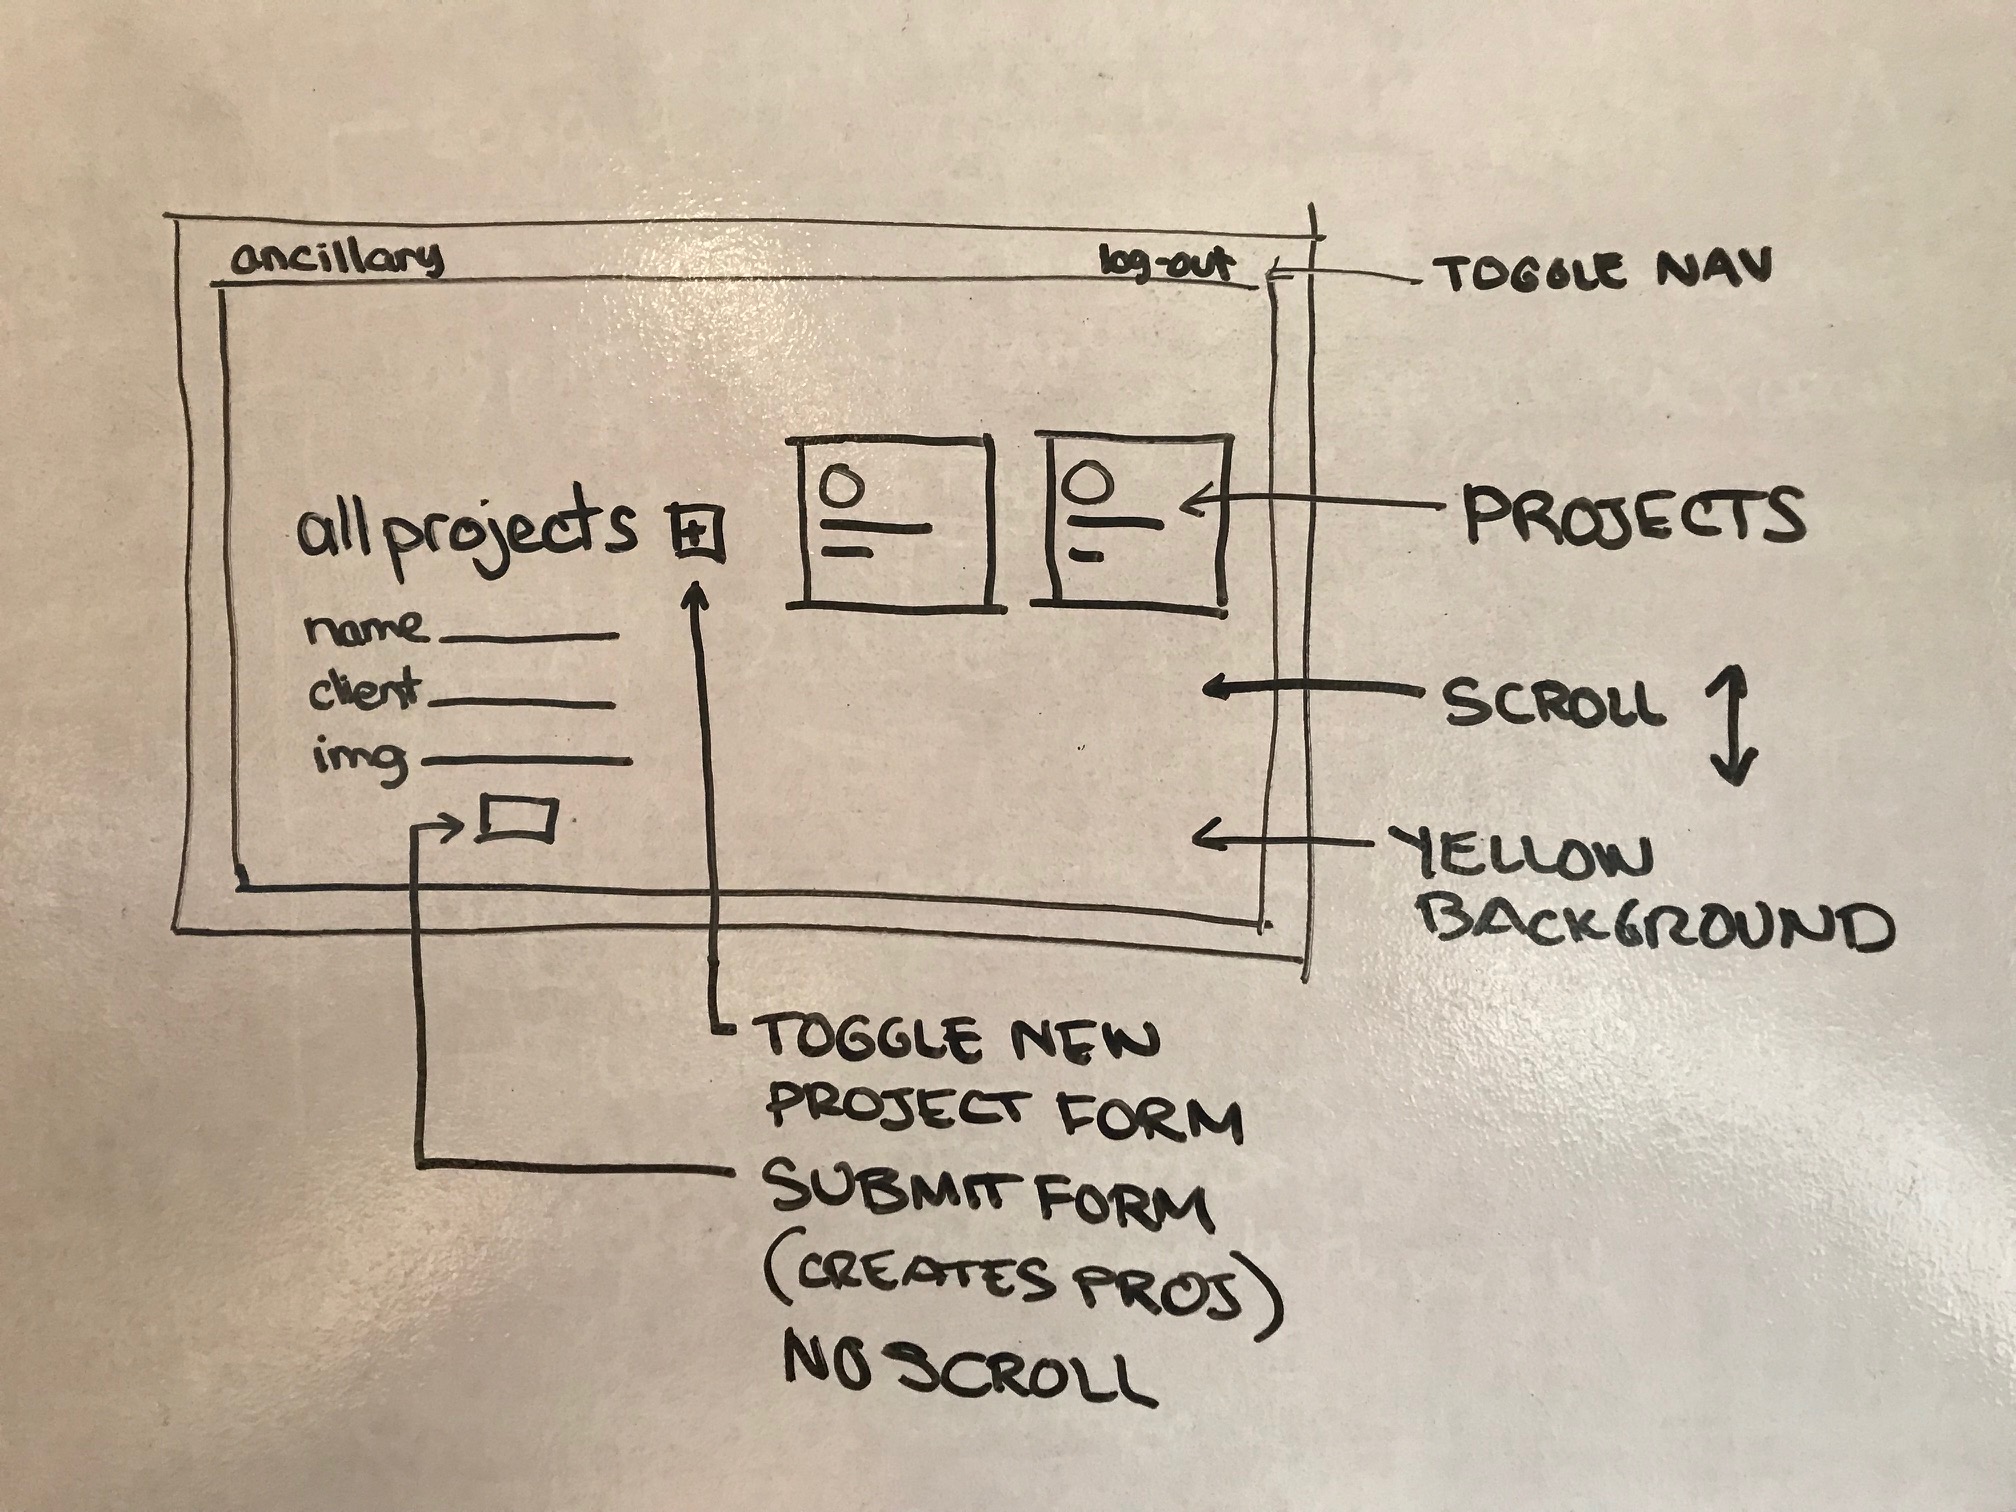 ancillary
log-out
TOGGLE NAV
all projects +
PROJECTS
name
client
img
SCROLL
YELLOW
BACKGROUND
TOGGLE NEW
PROJECT FORM
SUBMIT FORM
(CREATES PROJ)
NO SCROLL